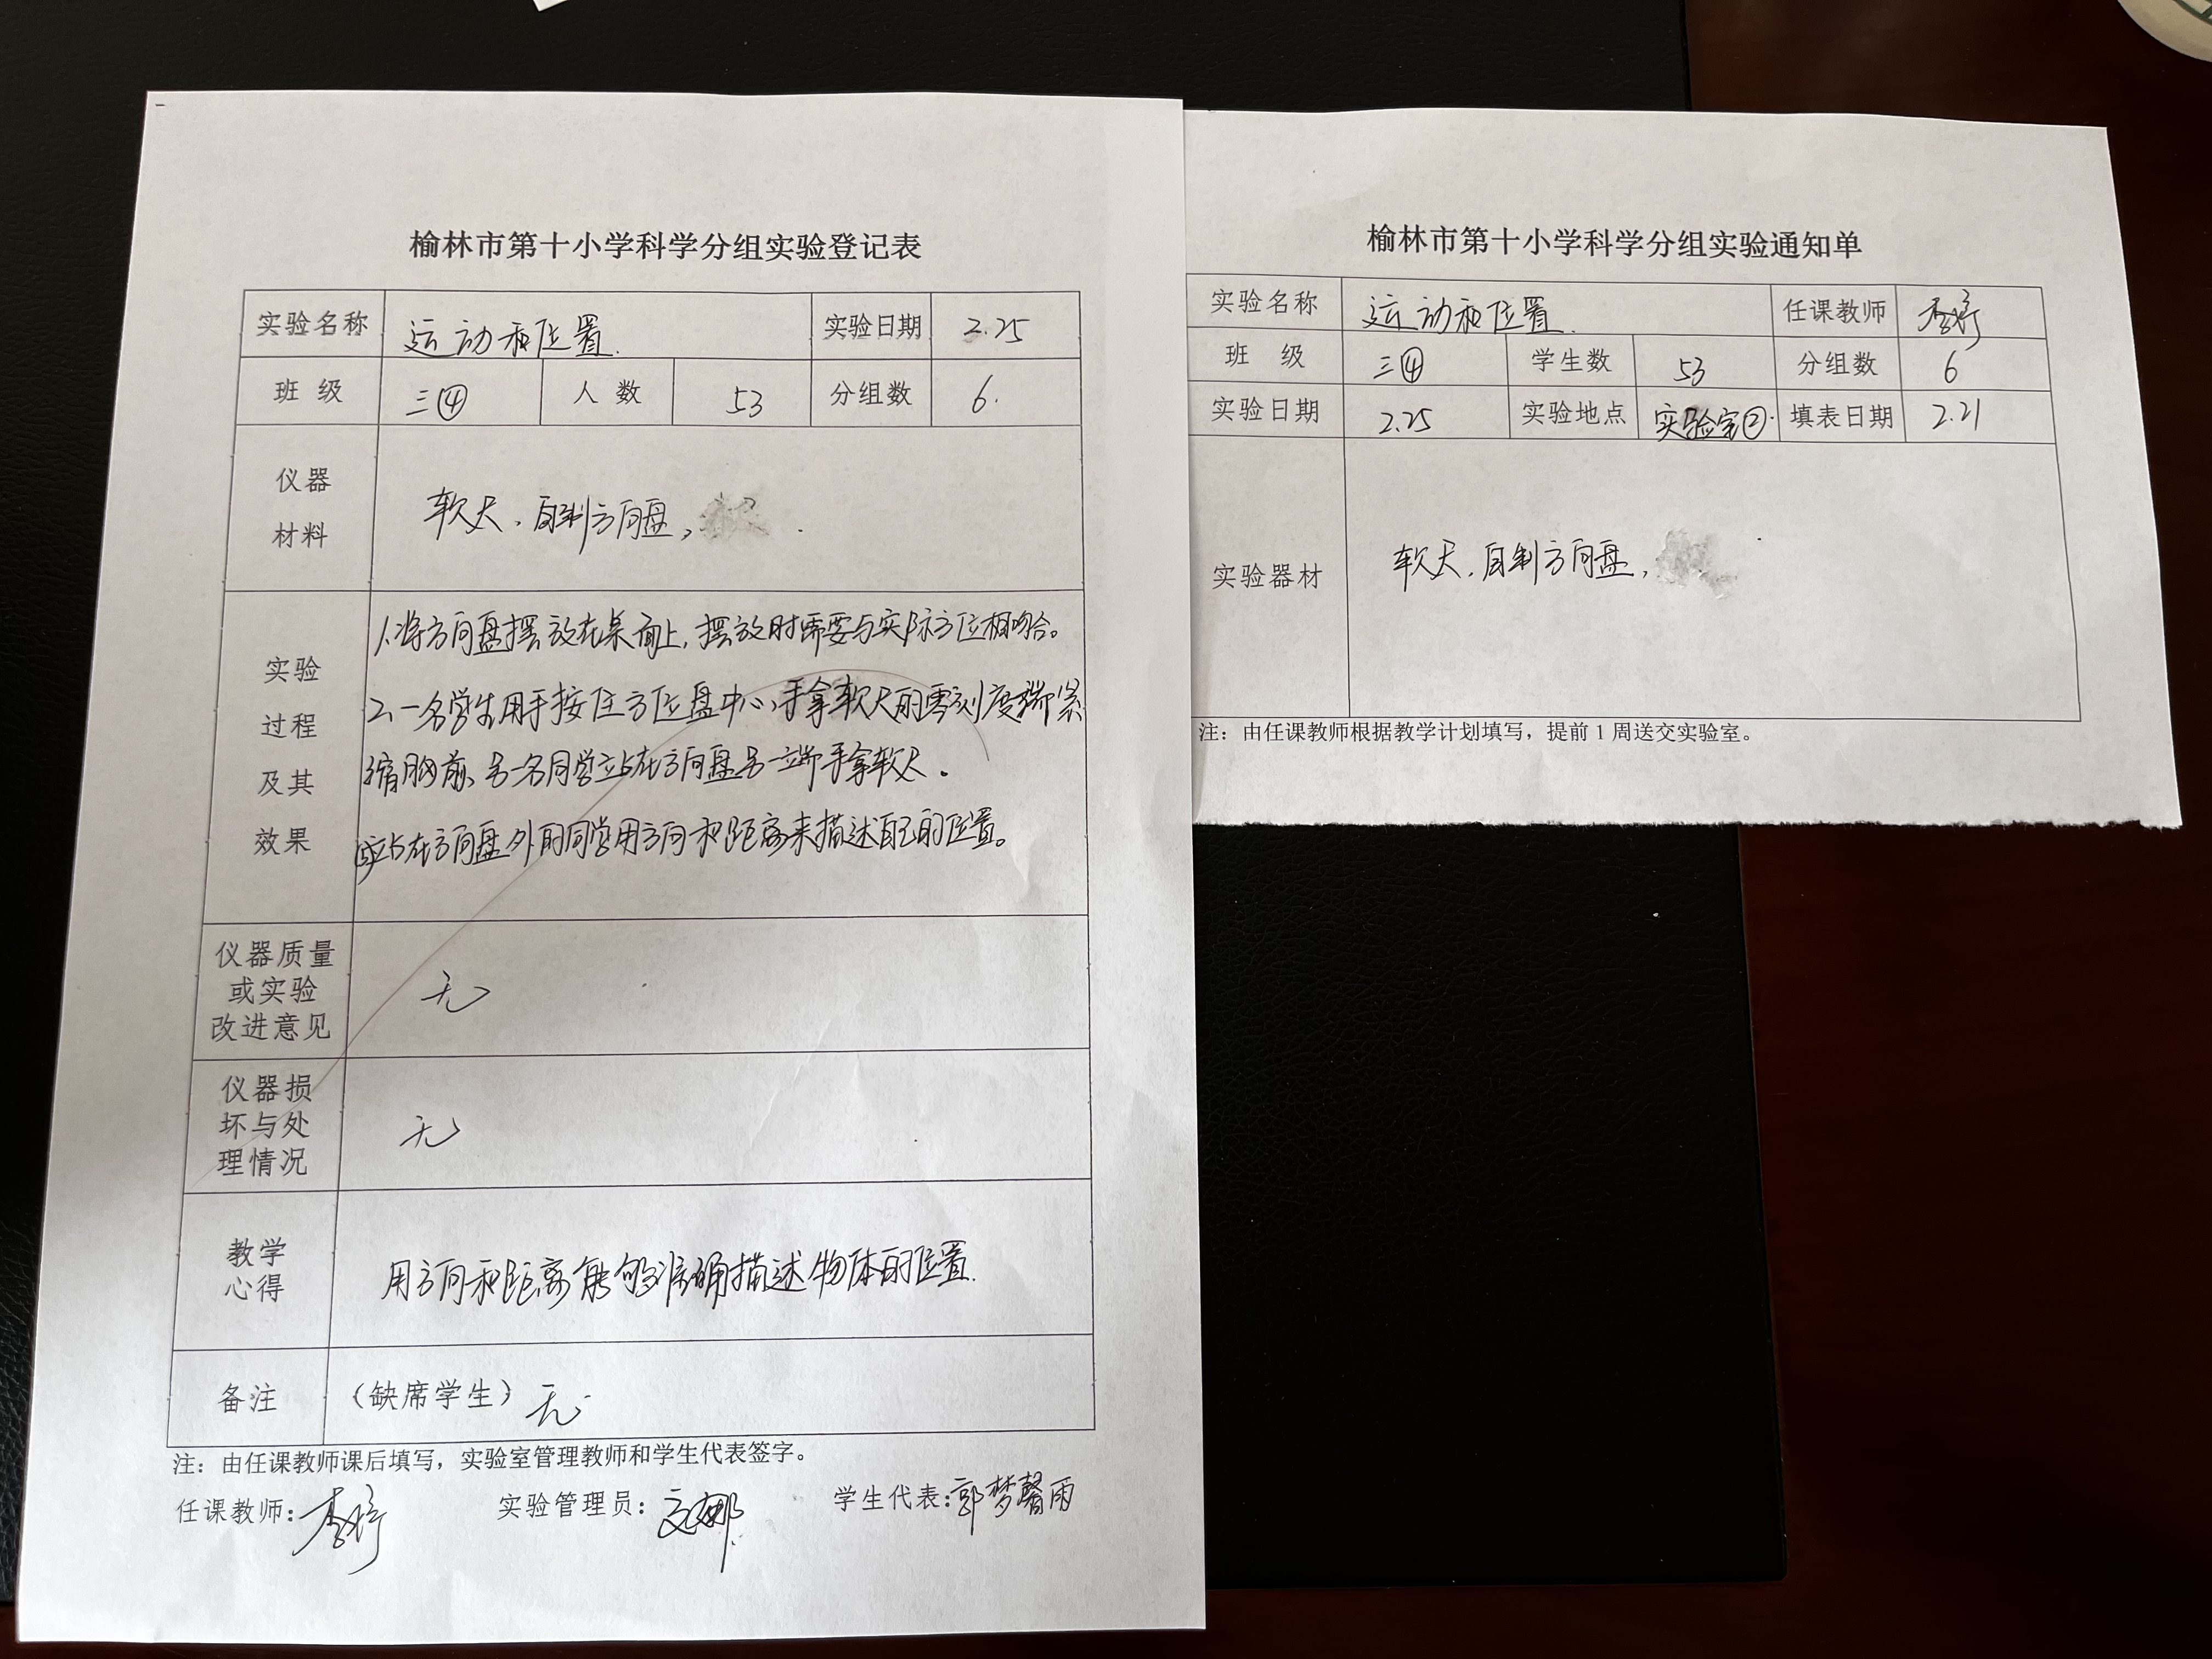 榆林市第十小学科学分组实验登记表
实验名称 运动和位置. 实验日期 2.25
班 级 三④ 人 数 53 分组数 6.
仪器
材料
软尺、自制方向盘,
实验
过程
及其
效果
1、将方向盘摆放在桌面上,摆放时需要与实际方位相吻合。
2、一名学生用手按住方位盘中心,手拿软尺的零刻度端紧
缩胸前、另一名同学站在方向盘另一端手拿软尺.
站在方向盘外的同学用方向和距离来描述自己的位置。
仪器质量
或实验
改进意见
无
仪器损
坏与处
理情况
无
教学
心得
用方向和距离能够准确描述物体的位置.
备注 (缺席学生) 无
注：由任课教师课后填写，实验室管理教师和学生代表签字。
任课教师: 李婷 实验管理员: 文娜 学生代表: 郭梦馨雨
榆林市第十小学科学分组实验通知单
实验名称 运动和位置. 任课教师 李婷
班 级 三④ 学生数 53 分组数 6
实验日期 2.25 实验地点 实验室②. 填表日期 2.21
实验器材 软尺、自制方向盘,
注：由任课教师根据教学计划填写，提前 1 周送交实验室。